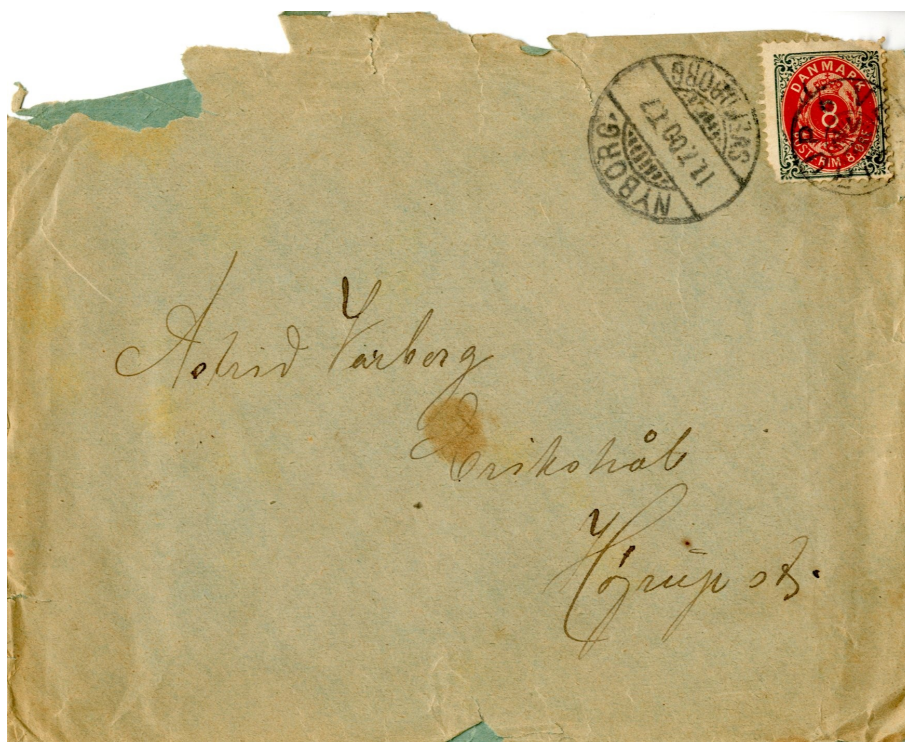 NYBORG - SVENDBORG
11.7.00. T7
DANMARK
8
POST FRIM 8 ØRE
Astrid Varberg
Erikshåb
Højrup st.